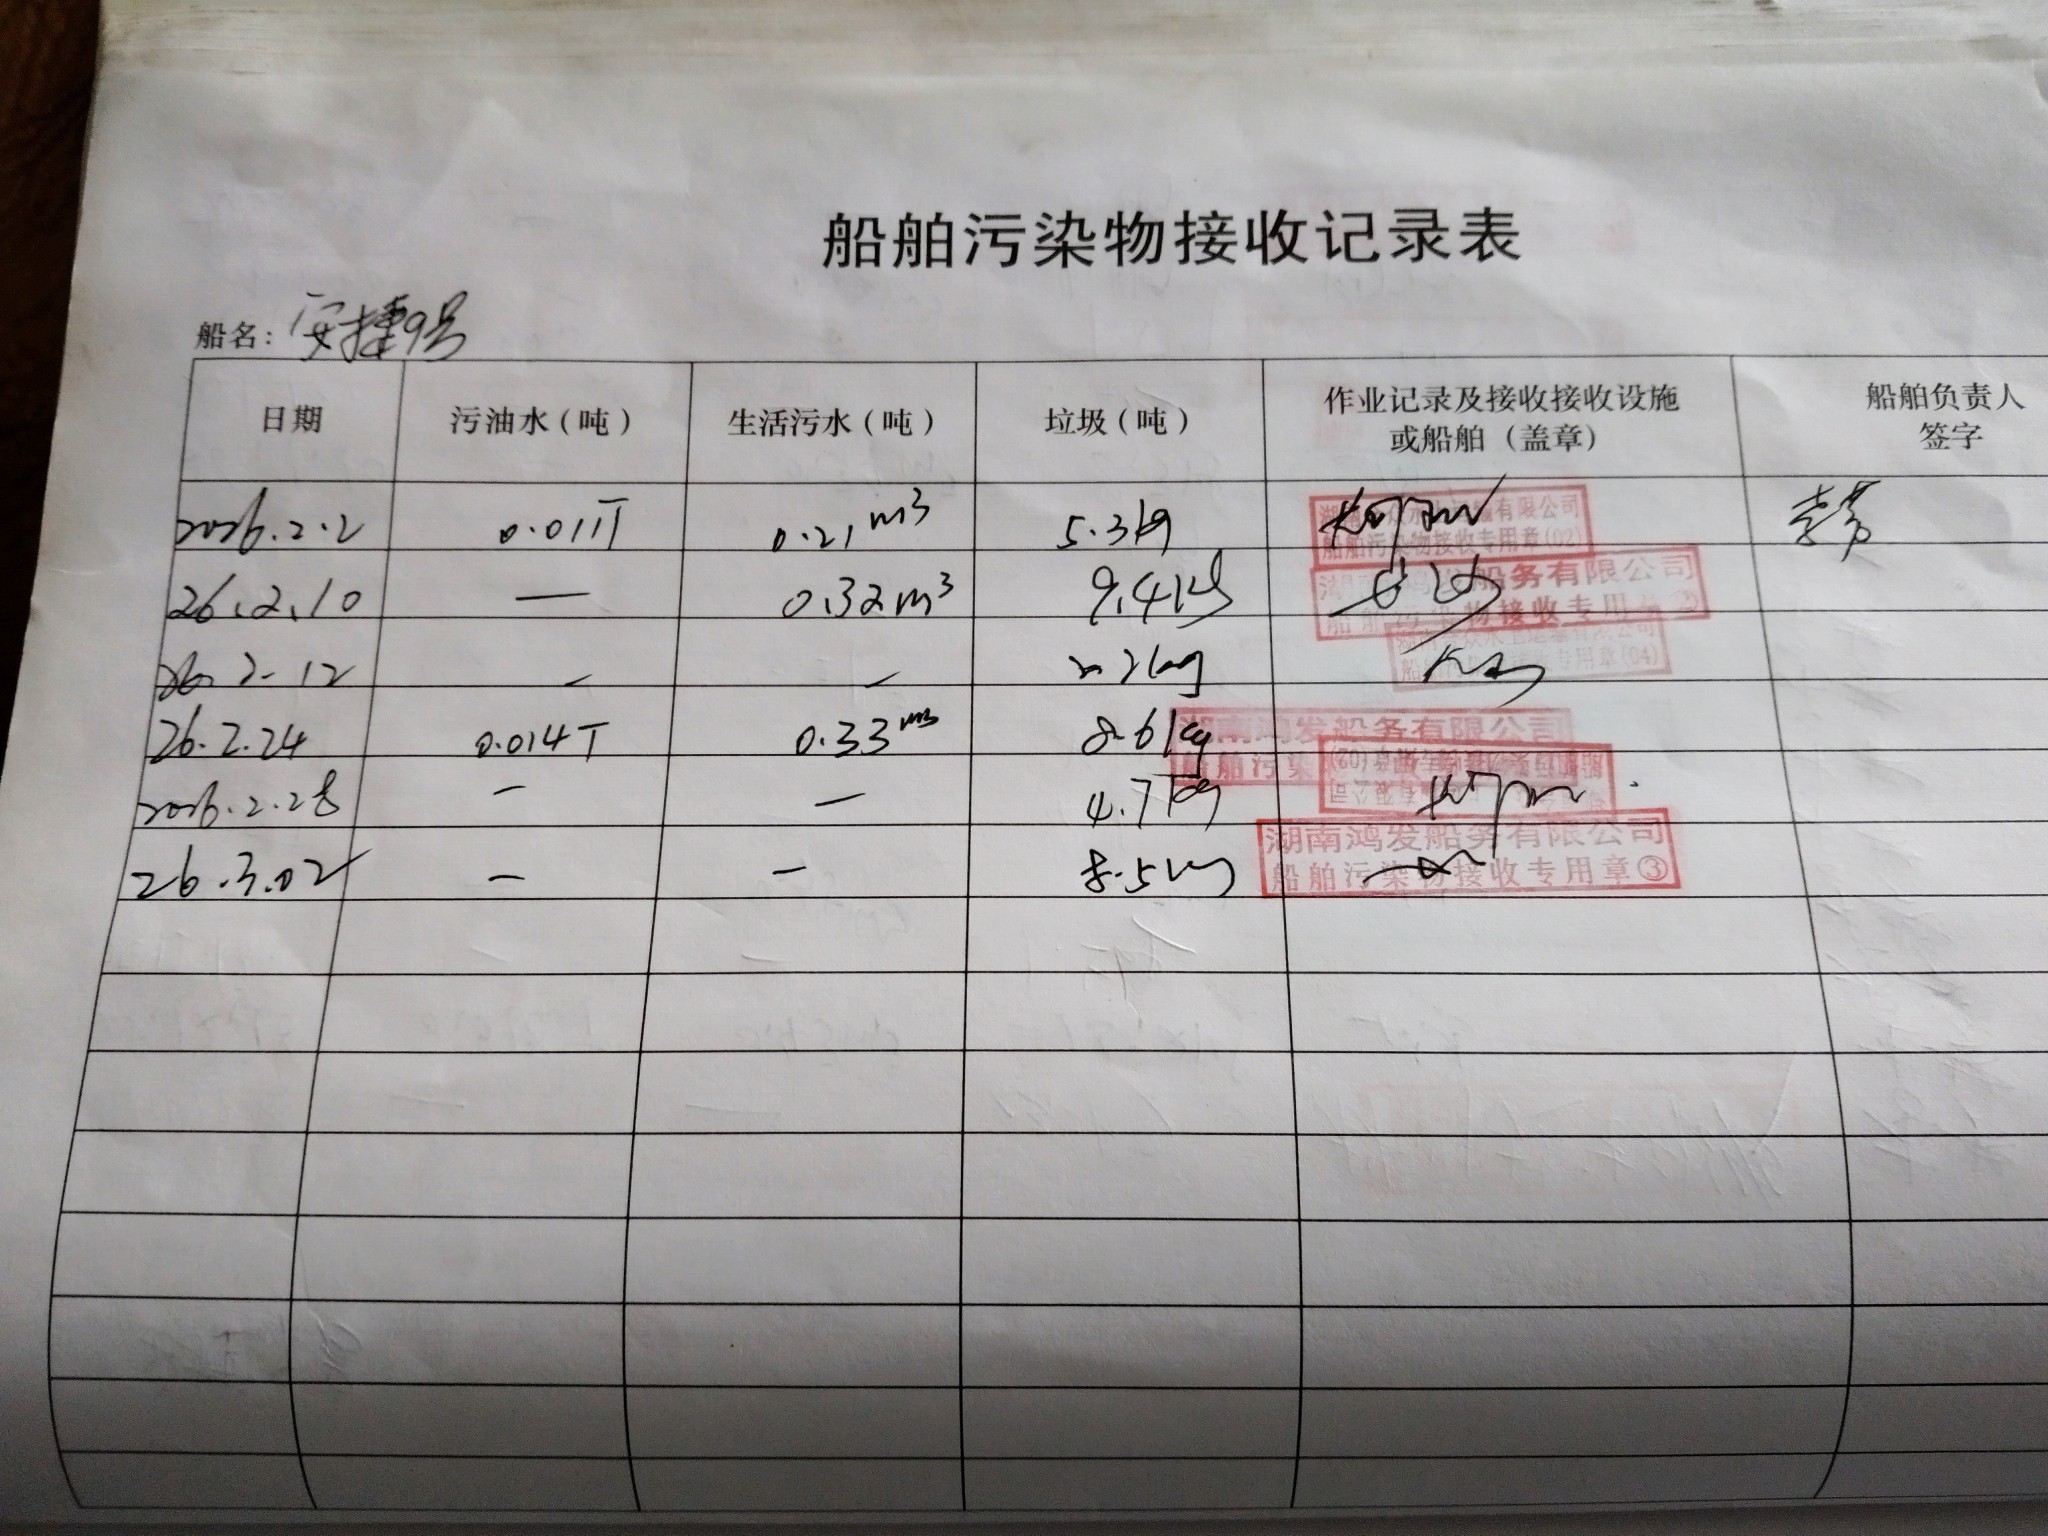 船舶污染物接收记录表
船名：安捷9号
日期 污油水（吨） 生活污水（吨） 垃圾（吨） 作业记录及接收接收设施或船舶（盖章） 船舶负责人签字
2026.2.2 0.011T 0.21m³ 5.3kg 有限公司 船舶污染物接收专用章(02)
26.2.10 — 0.32m³ 9.4kg 船务有限公司 物接收专用章
26.2.12 — — 2.2kg 专用章(04)
26.2.24 0.014T 0.33m³ 8.6kg 湖南鸿发船务有限公司 船舶污染
2026.2.28 — — 4.7kg
26.3.02 — — 8.5kg 湖南鸿发船务有限公司 船舶污染物接收专用章③